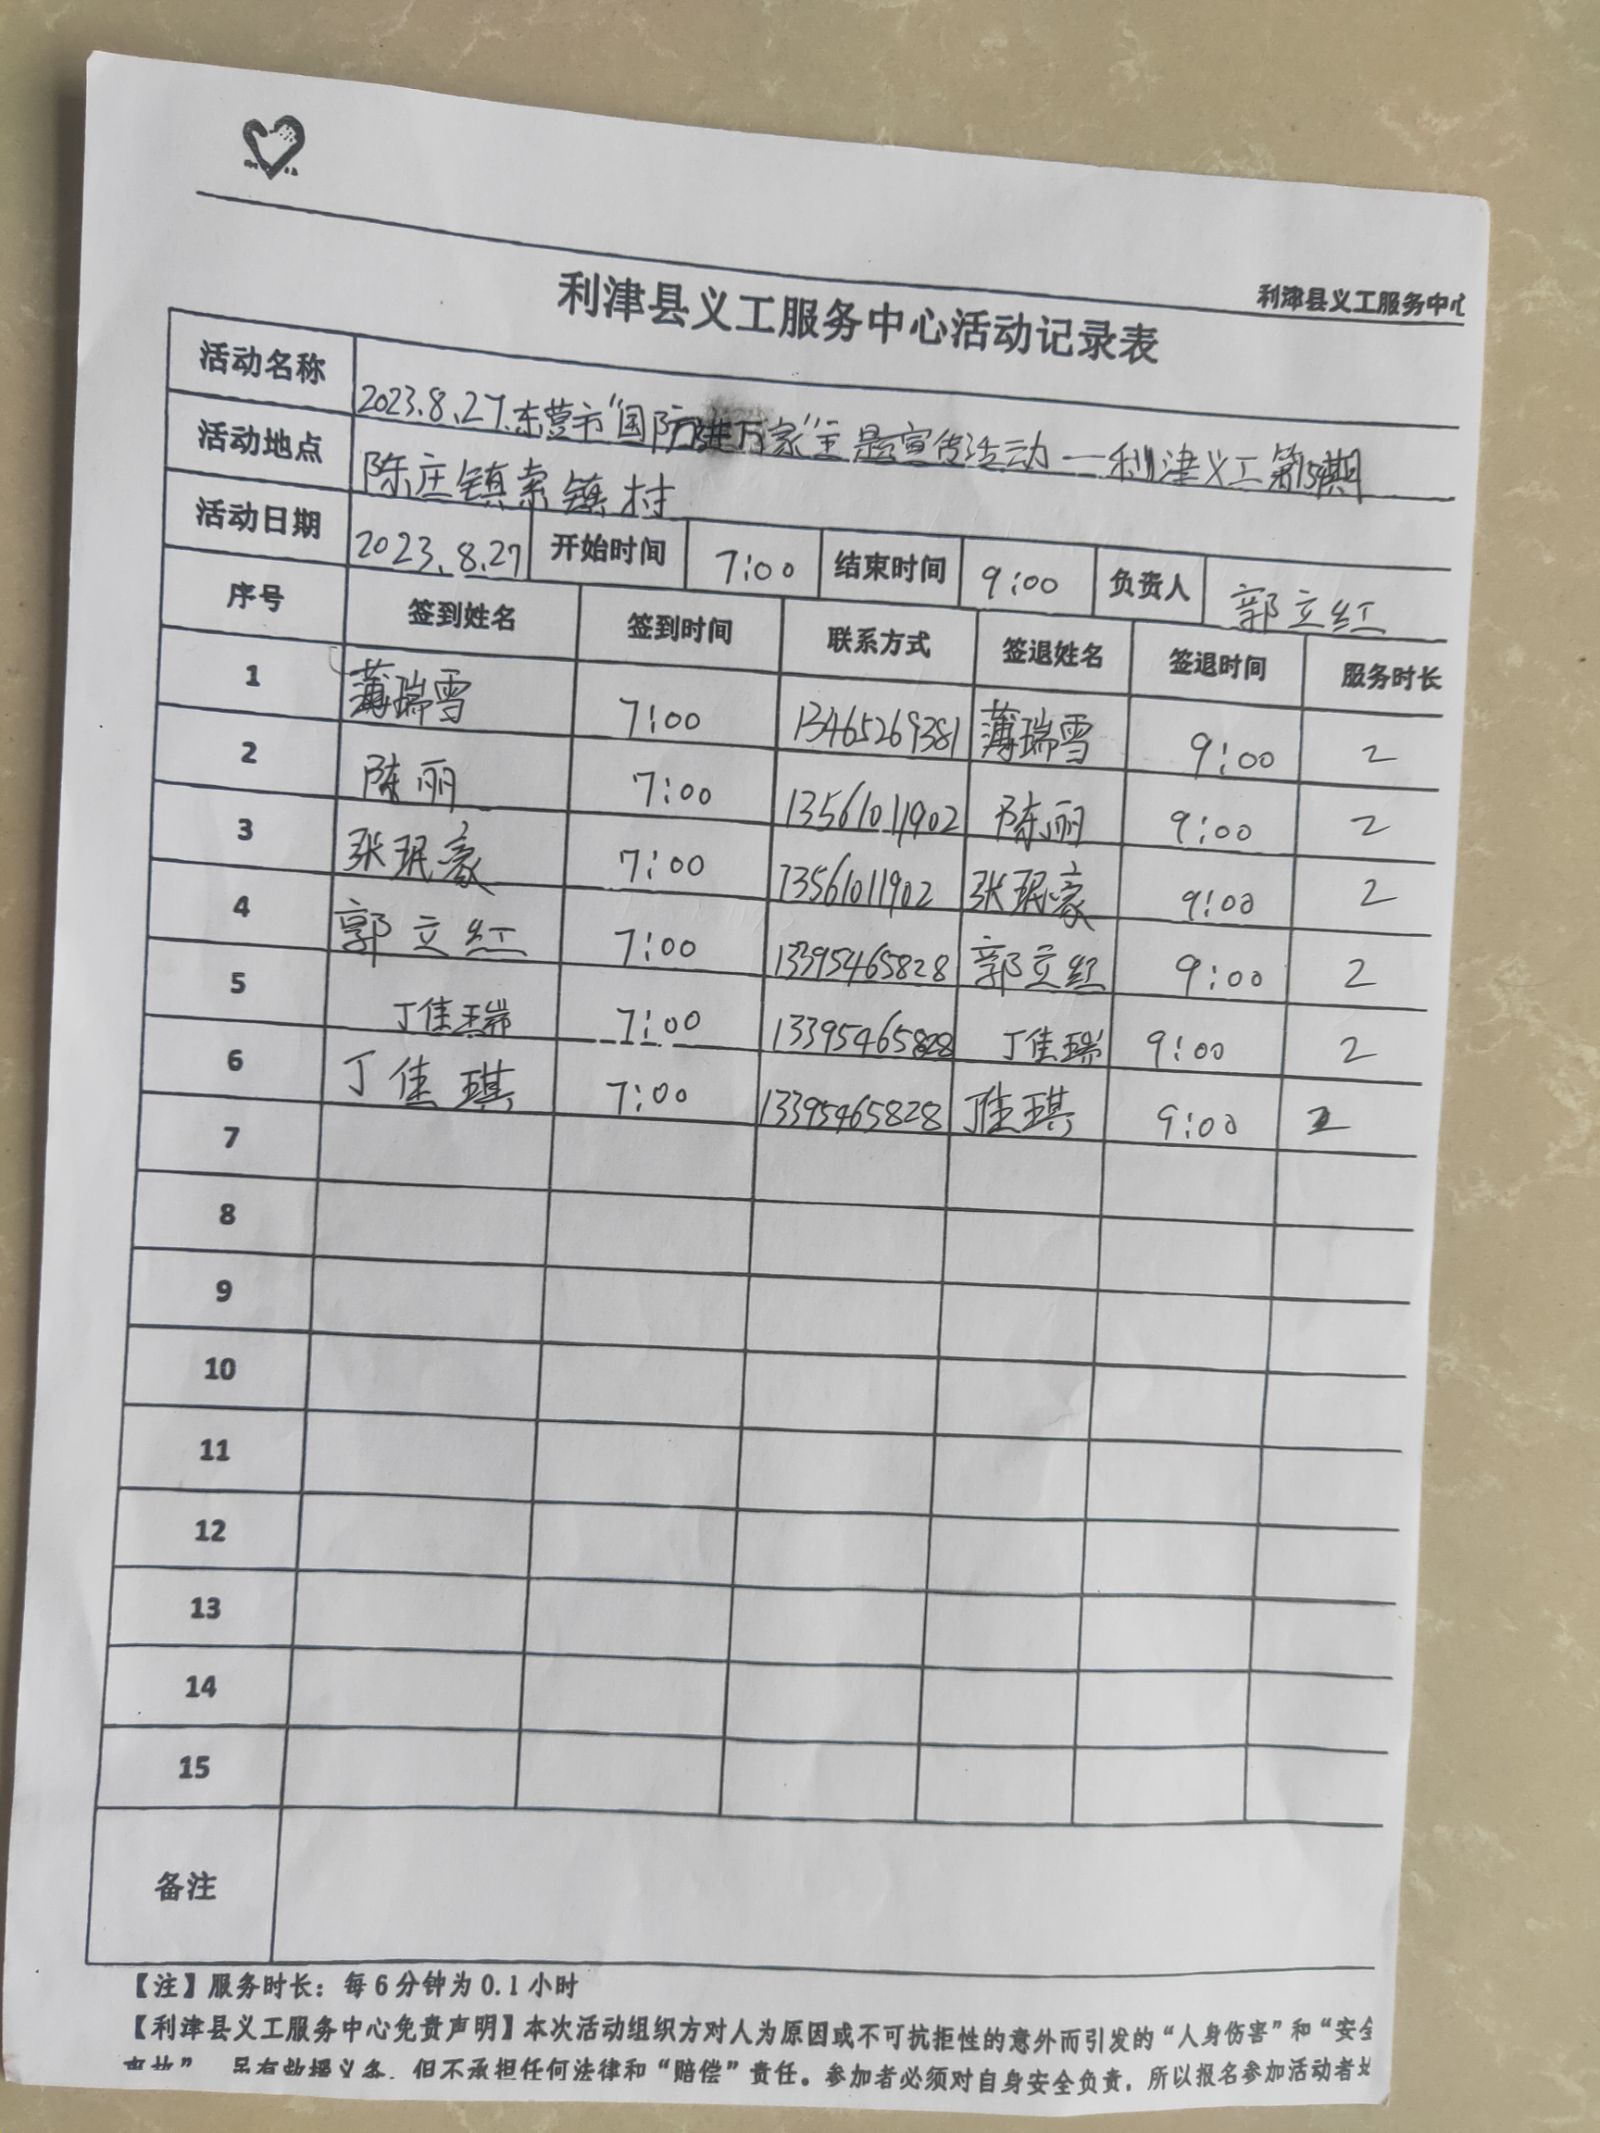 利津县义工服务中心
利津县义工服务中心活动记录表
活动名称 2023.8.27.东营市“国防进万家”主题宣传活动—利津义工第15期
活动地点 陈庄镇索镇村
活动日期 2023.8.27 开始时间 7:00 结束时间 9:00 负责人 郭立红
序号 签到姓名 签到时间 联系方式 签退姓名 签退时间 服务时长
1 薄瑞雪 7:00 13465269381 薄瑞雪 9:00 2
2 陈丽 7:00 13561011902 陈丽 9:00 2
3 张珉豪 7:00 13561011902 张珉豪 9:00 2
4 郭立红 7:00 13395465828 郭立红 9:00 2
5 丁佳瑞 7:00 13395465828 丁佳瑞 9:00 2
6 丁佳琪 7:00 13395465828 丁佳琪 9:00 2
7
8
9
10
11
12
13
14
15
备注
【注】服务时长：每6分钟为0.1小时
【利津县义工服务中心免责声明】本次活动组织方对人为原因或不可抗拒性的意外而引发的“人身伤害”和“安全
事故”，另有救援义务，但不承担任何法律和“赔偿”责任。参加者必须对自身安全负责，所以报名参加活动者